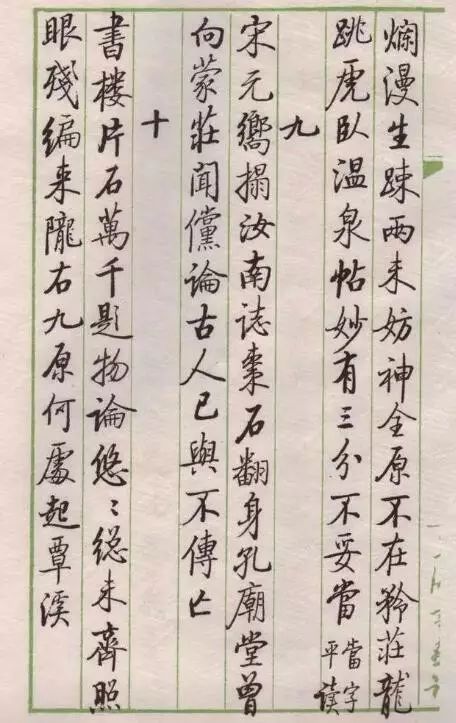 爛漫生踈兩未妨神全原不在矜莊龍
跳虎臥温泉帖妙有三分不妥當
當字
平读
九
宋元嚮搨汝南誌棗石翻身孔廟堂曾
向蒙莊聞讜論古人已與不傳亾
十
書樓片石萬千題物論悠〻總未齊照
眼殘編来隴右九原何處起覃溪